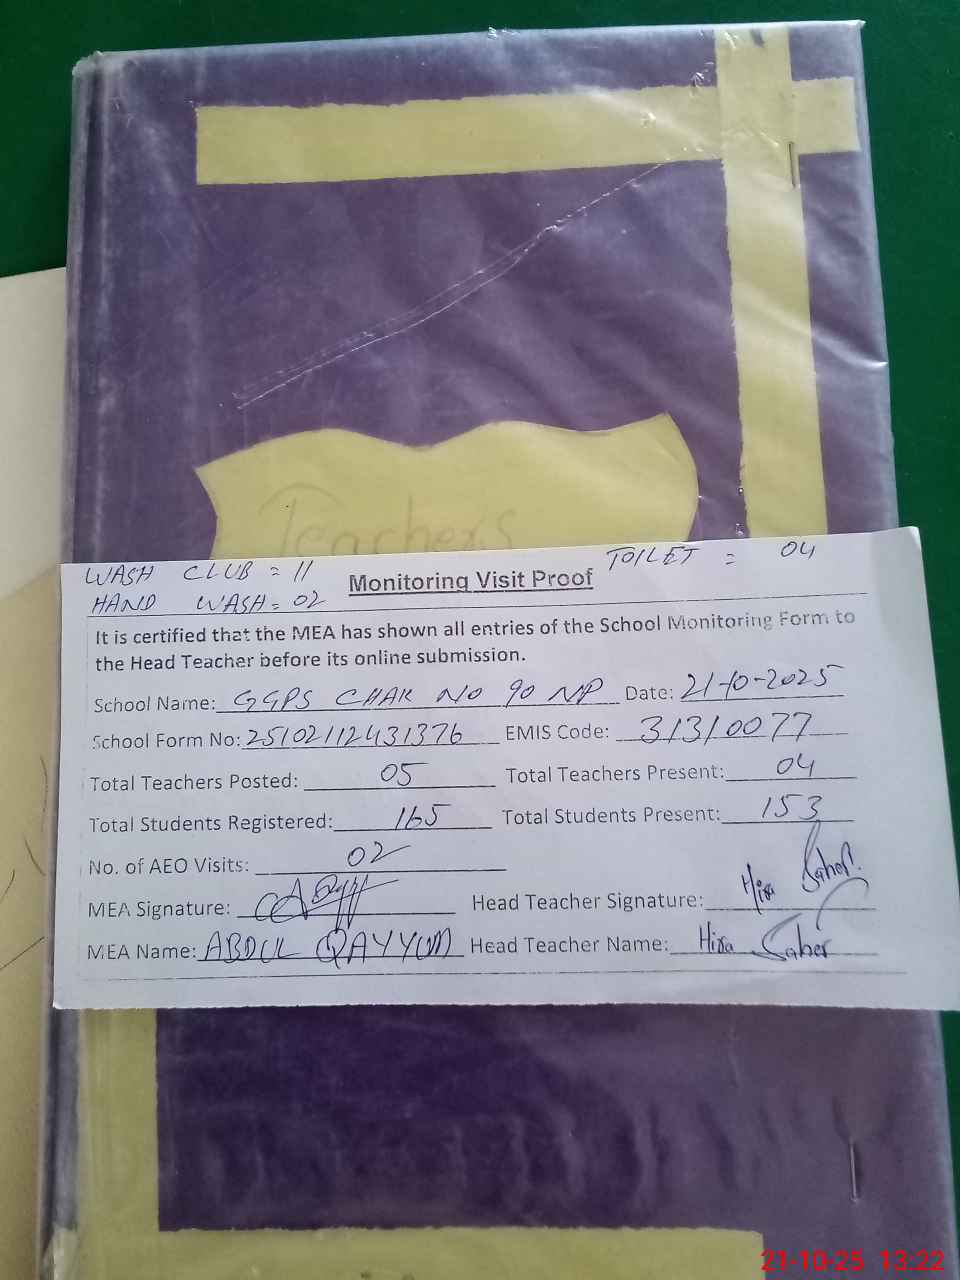 Teachers
WASH CLUB = 11 TOILET = 04
HAND WASH = 02
Monitoring Visit Proof
It is certified that the MEA has shown all entries of the School Monitoring Form to
the Head Teacher before its online submission.
School Name: GGPS CHAK NO 90 NP Date: 21-10-2025
School Form No: 25102112431376 EMIS Code: 31310077
Total Teachers Posted: 05 Total Teachers Present: 04
Total Students Registered: 165 Total Students Present: 153
No. of AEO Visits: 02
MEA Signature: Head Teacher Signature: Hira
MEA Name: ABDUL QAYYUM Head Teacher Name: Hira
21-10-25 13:22